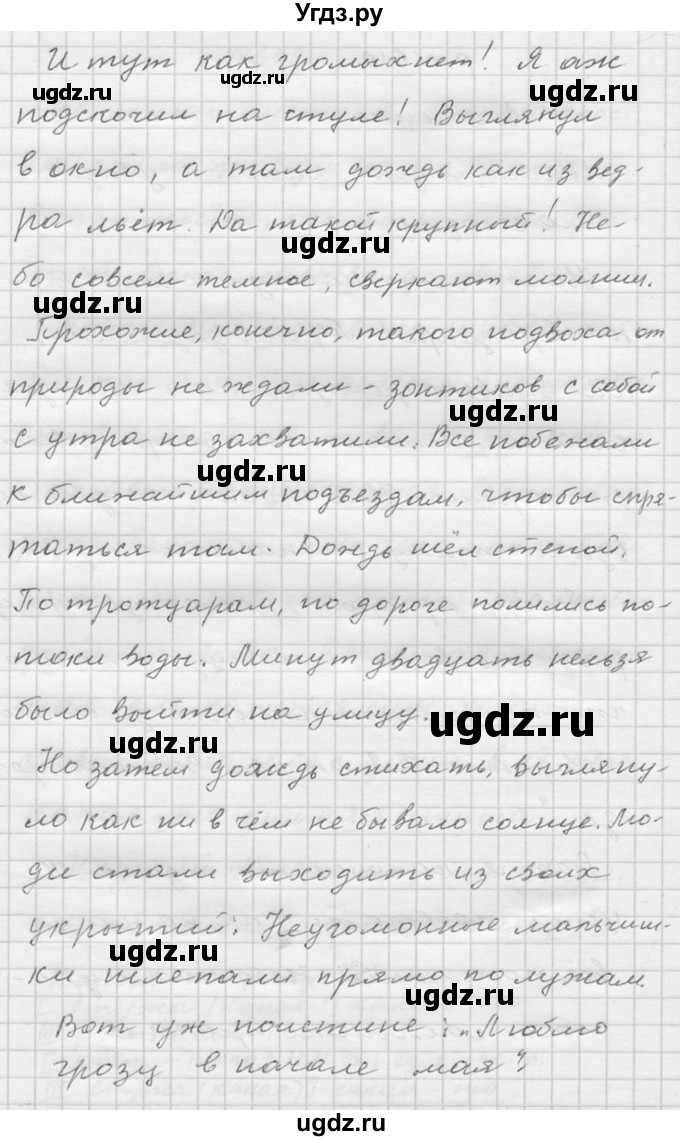 Угдз.ру
И тут как громыхнет! Я аж
ugdz.ru ugdz.ru ugdz.ru
подскочил на стуле! Выглянул
в окно, а там дождь как из вед-
ра льёт. Да такой крупный! Не-
ugdz.ru
бо совсем темное, сверкают молнии.
ugdz.ru ugdz.ru
Прохожие, конечно, такого подвоха от
природы не ждали - зонтиков с собой
ugdz.ru
с утра не захватили. Все побежали
ugdz.ru
к ближайшим подъездам, чтобы спря-
таться там. Дождь шёл стеной.
По тротуарам, по дороге полились по-
токи воды. Минут двадцать нельзя
было выйти на улицу.
ugdz.ru ugdz.ru
Но затем дождь стихать, выгляну-
ло как ни в чём не бывало солнце. Лю-
ди стали выходить из своих
укрытий. Неугомонные мальчиш-
ugdz.ru
ки шлепали прямо по лужам.
ugdz.ru
Вот уж поистине: „Люблю
грозу в начале мая"
ugdz.ru